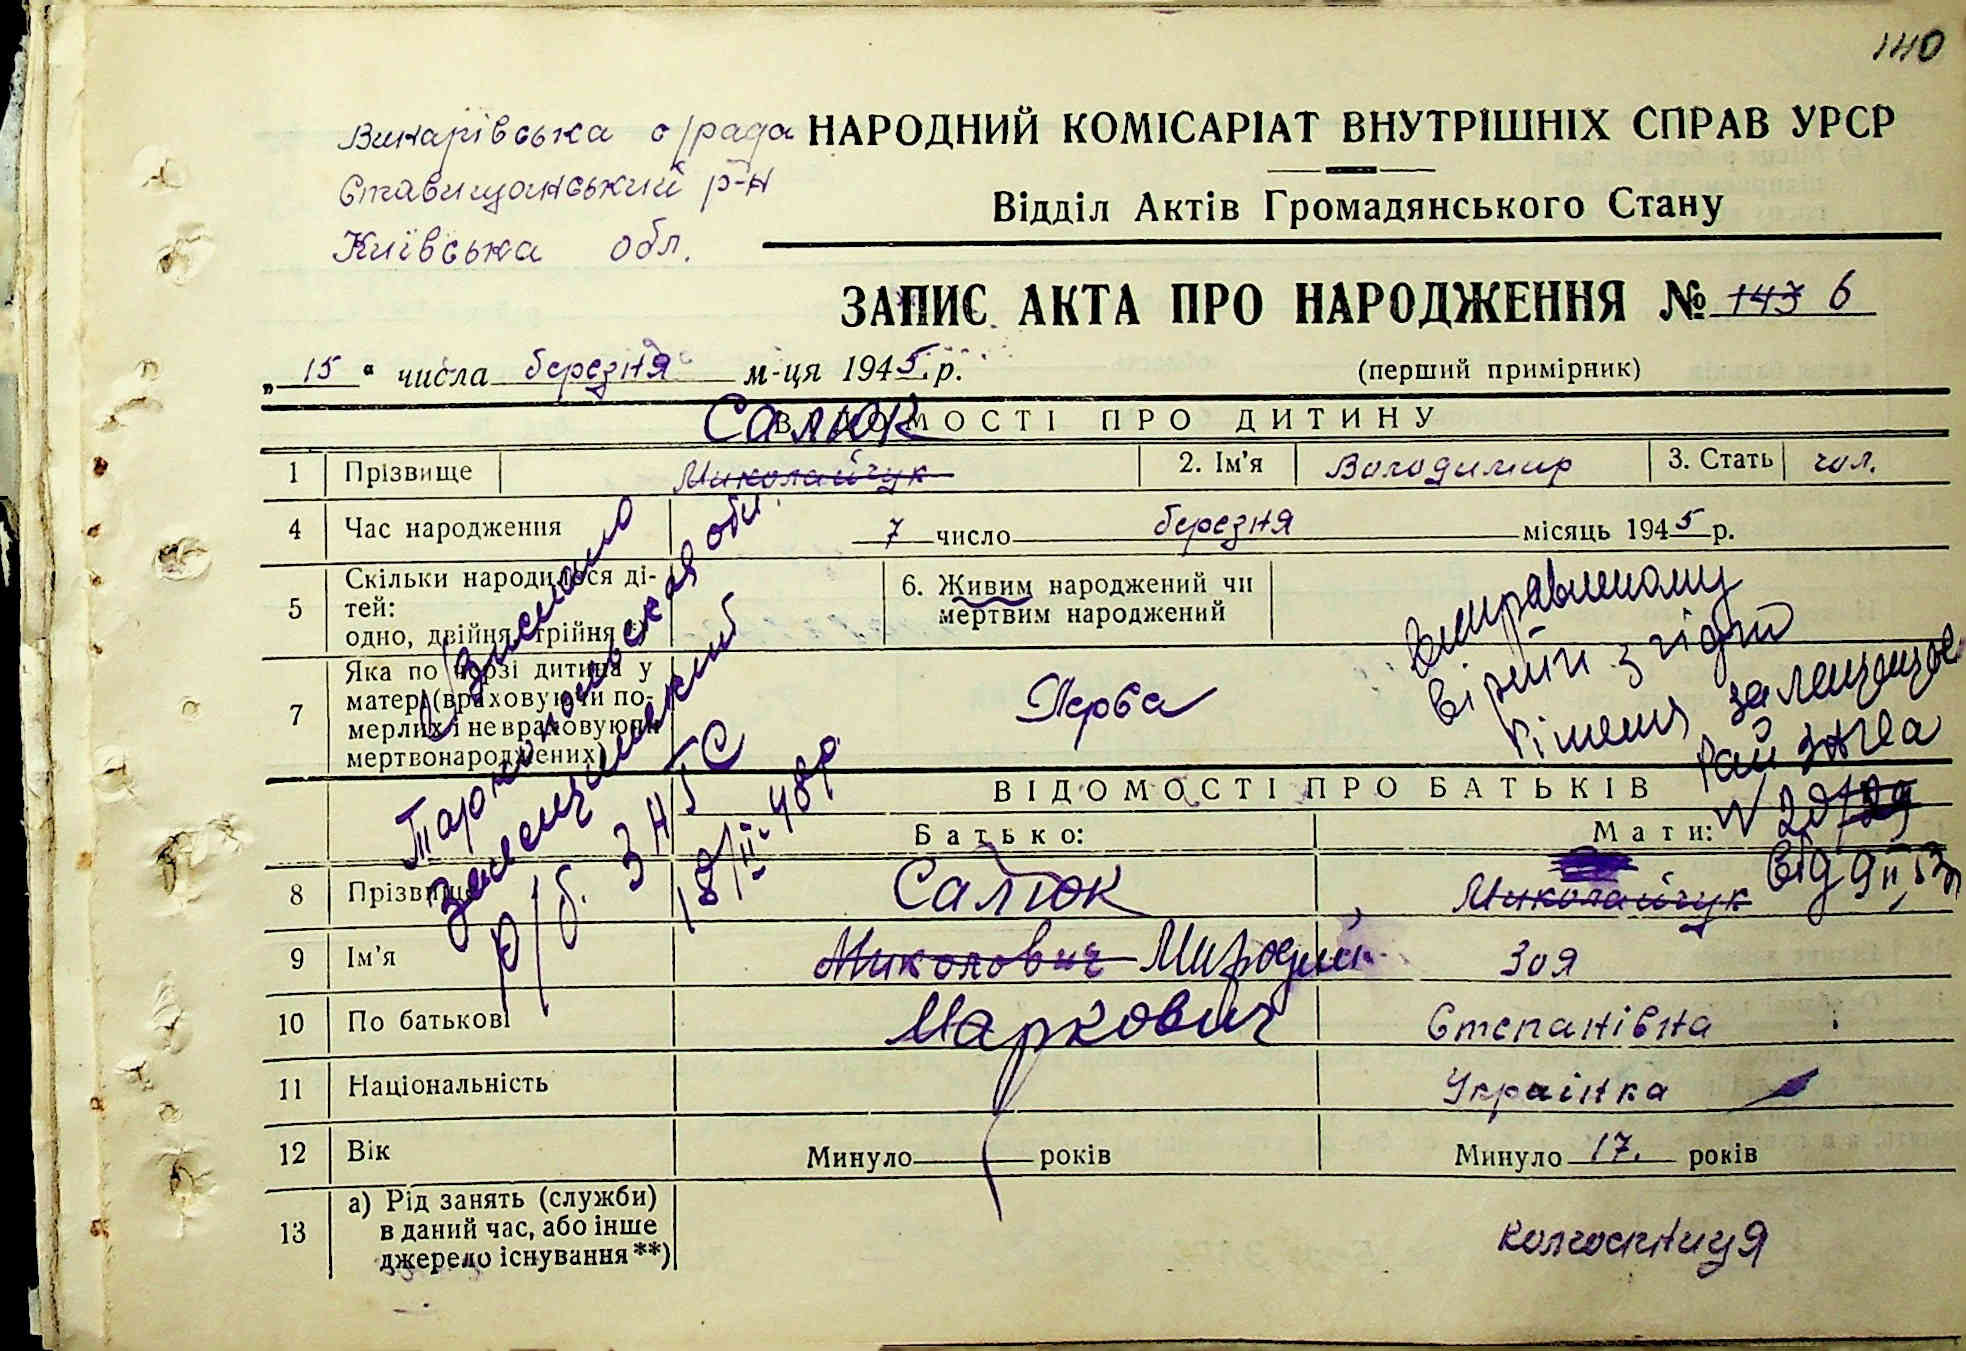 140
Винарівська с/рада
Ставищанський р-н
Київська обл.
НАРОДНИЙ КОМІСАРІАТ ВНУТРІШНІХ СПРАВ УРСР
Відділ Актів Громадянського Стану
ЗАПИС АКТА ПРО НАРОДЖЕННЯ № 143 6
„ 15 “ числа березня м-ця 1945 р.
(перший примірник)
ВІДОМОСТІ ПРО ДИТИНУ
Салюк
1 Прізвище Миколайчук 2. Ім’я Володимир 3. Стать чол.
4 Час народження 7 число березня місяць 1945 р.
5 Скільки народилося ді-
тей:
одно, двійня, трійня
6. Живим народжений чи
мертвим народжений
7 Яка по черзі дитина у
матері (враховуючи по-
мерлих і не враховуючи
мертвонароджених)
Перва
Виправленому
вірити згідно
рішення
рай загса
від 9
ЗАГС
18/II-48р
ВІДОМОСТІ ПРО БАТЬКІВ
Батько: Мати:
8 Прізвище Салюк Миколайчук
9 Ім’я Миколович Зоя
10 По батькові Маркович Степанівна
11 Національність Українка
12 Вік Минуло років Минуло 17. років
13 а) Рід занять (служби)
в даний час, або інше
джерело існування**)
колгоспниця